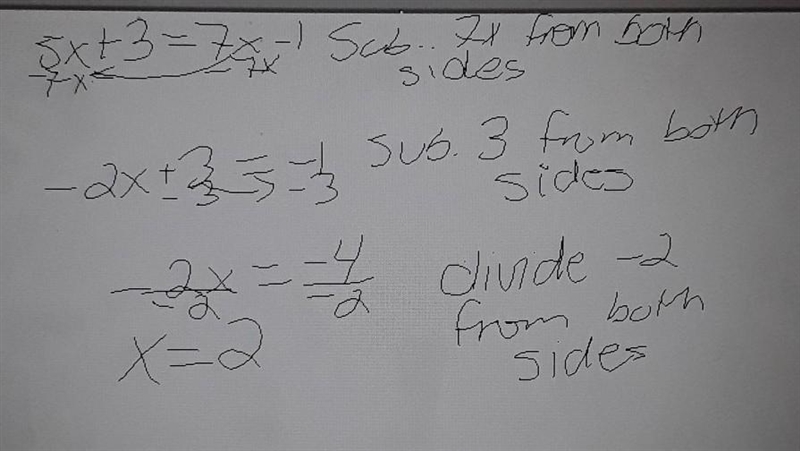 5x+3=7x-1 Sub.. 7x from both
-7x -7x sides
-2x+3=-1 Sub. 3 from both
-3 -3 sides
-2x = -4 divide -2
-2 -2 from both
x=2 sides